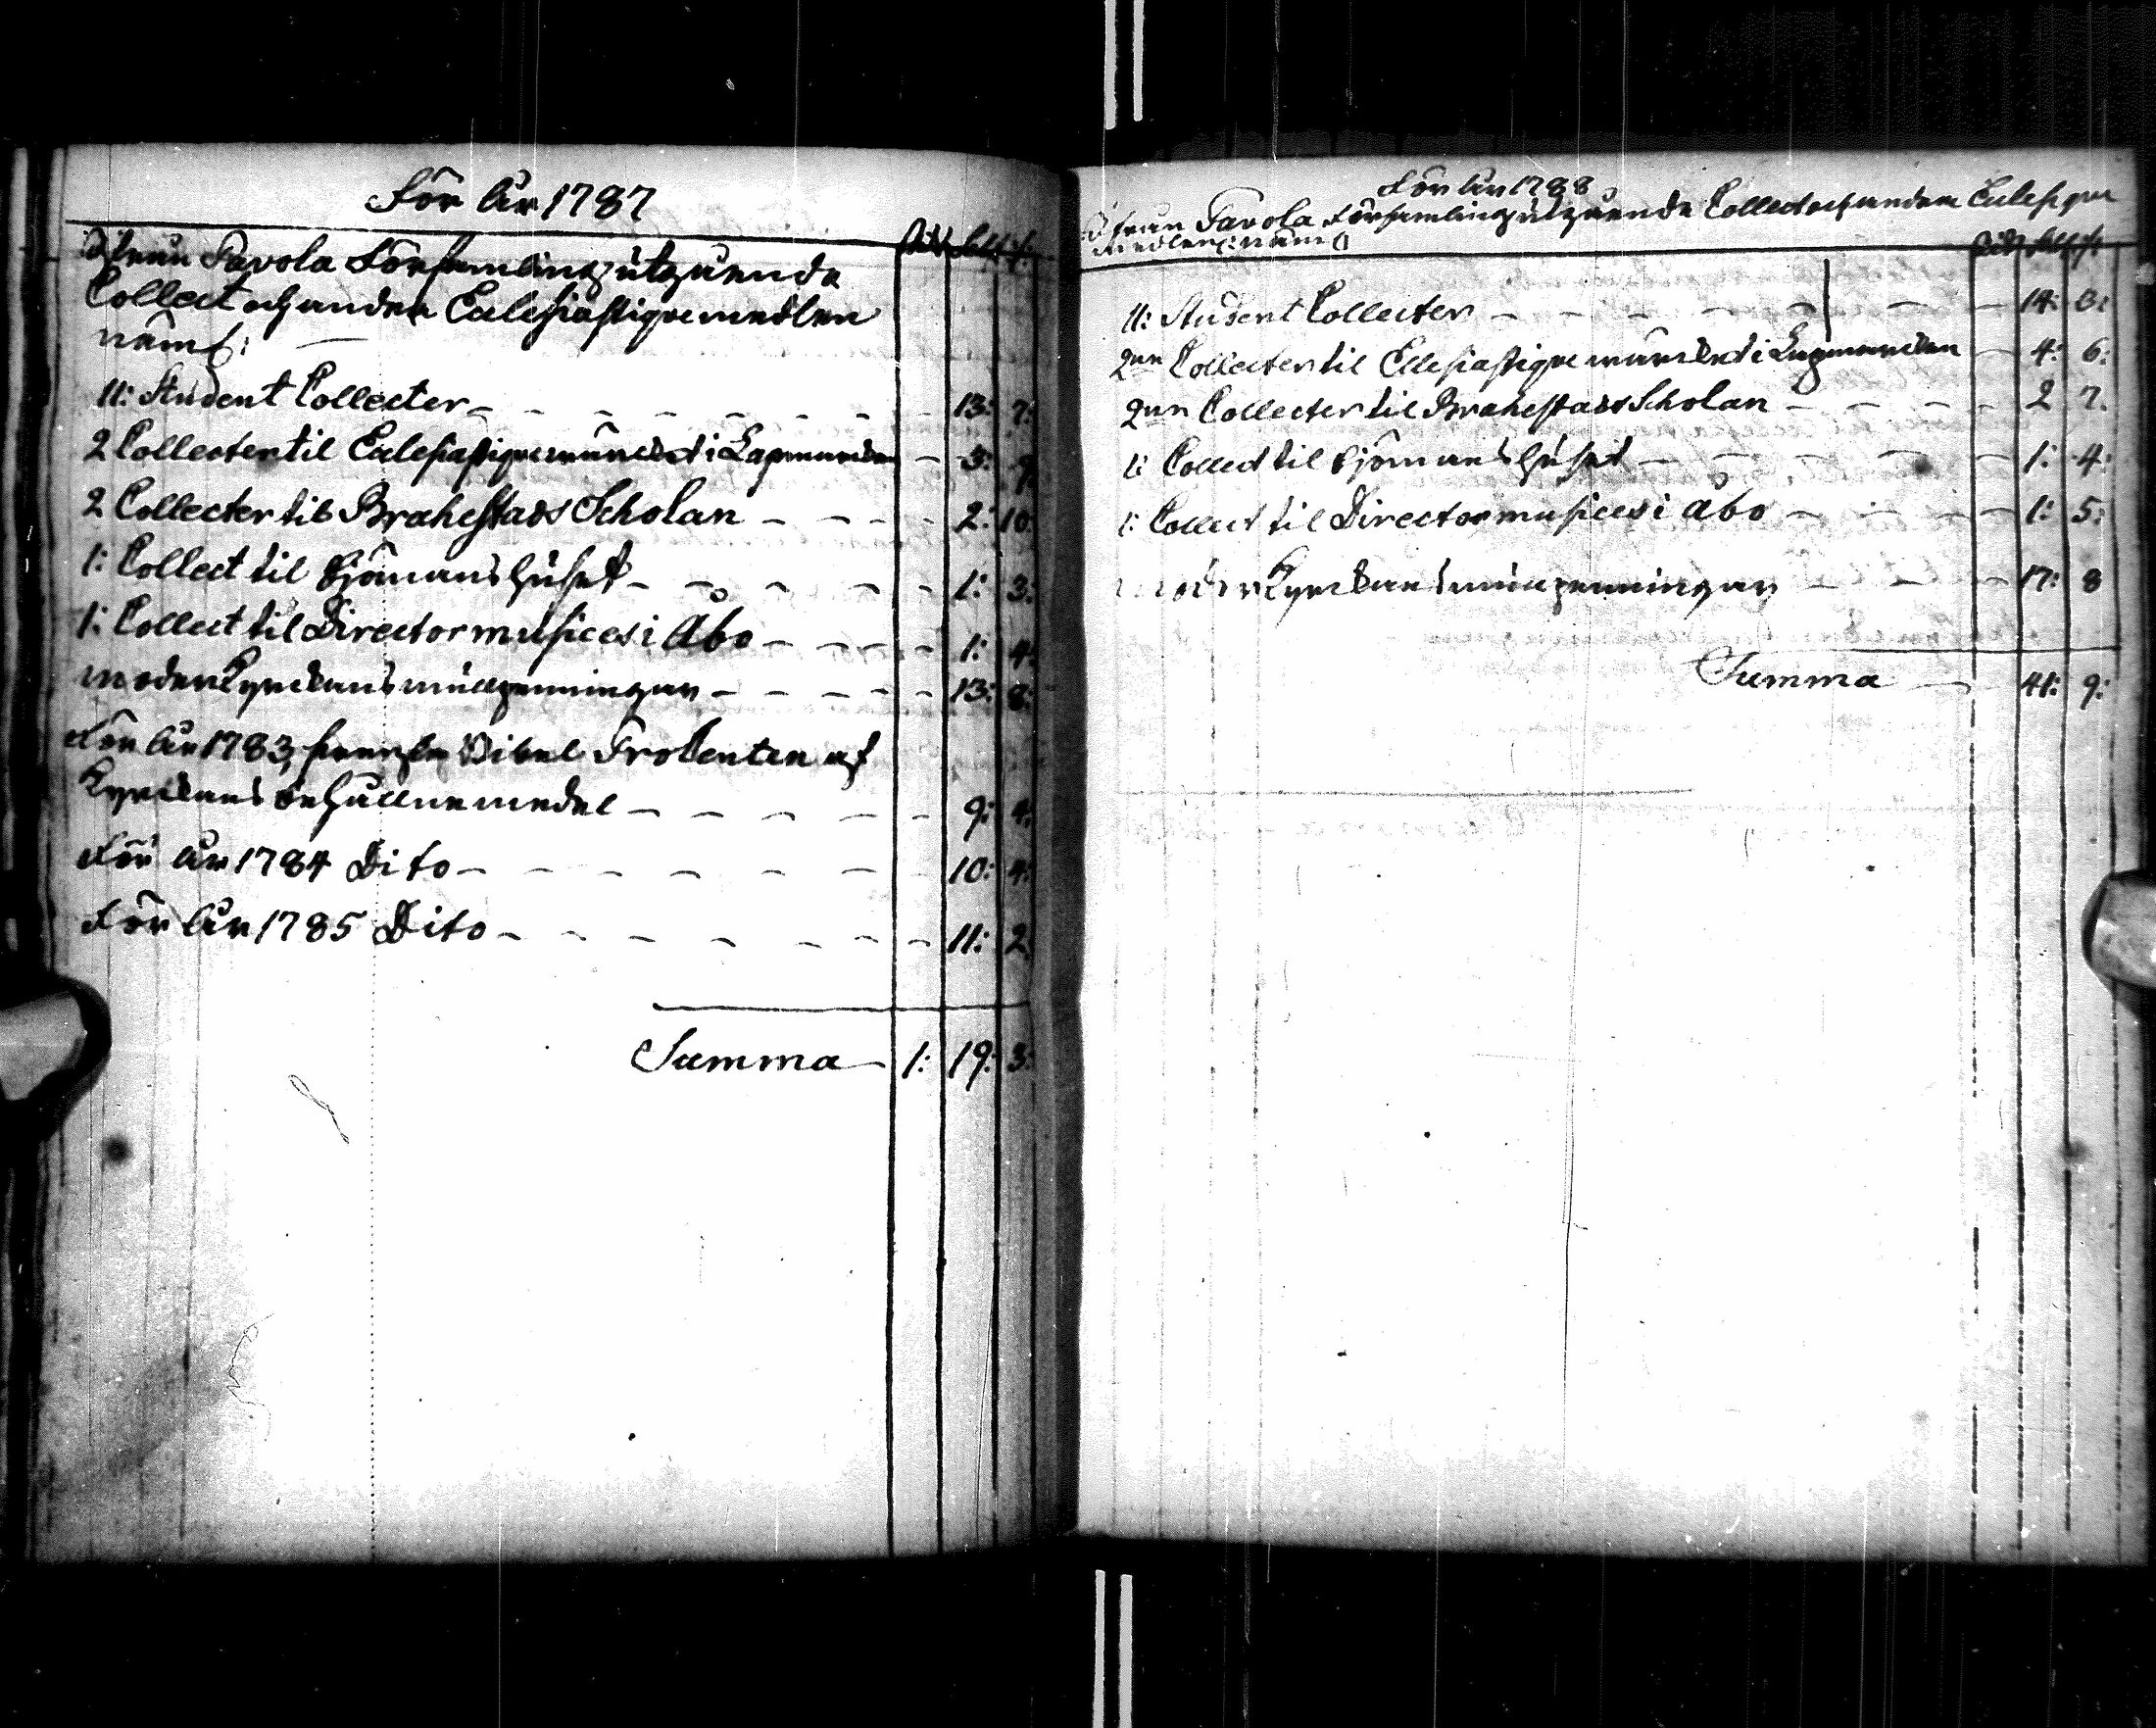 För År 1787
Ifrån Pavola Församling utgående Rdr Sch: r:
Collect och andra Eclesiastique medlen
näml:
11: Student Collecter 13: 7:
2 Collecter til Eclesiastique wärcket i Lapmarcken 3: 9
2 Collecter til Brahestads Scholan 2: 10
1: Collect til Sjömanshuset 1: 3:
1: Collect til Director musices i Åbo 1: 4:
moderkyrckans mullpenningar 13: 8:
För År 1783, Bibel Trokenten af
Kyrckans behållne medel 9: 4:
För År 1784 Dito 10: 4:
För År 1785 Dito 11: 2
Summa 1: 19: 3:
För År 1788
Ifrån Pavola Församling utgående Collect och andra Eclesique
medlen näml
11: Student Collecter 14: 3:
2ne Collecter til Ecclesiastique wärcket i Lapmarcken 4: 6:
2ne Collecter til Brahestads Scholan 2 7.
1: Collect til Sjömanshuset 1: 4:
1: Collect til Director musices i Åbo 1: 5:
moderkyrckans mullpenningar 17: 8
Summa 41: 9: